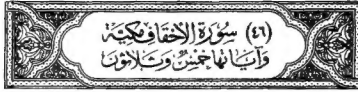 (٤٦) سُورَةُ الْأَحْقَافِ مَكِّيَّة
وَآيَاتُهَا خَمْسٌ وَثَلَاثُونَ